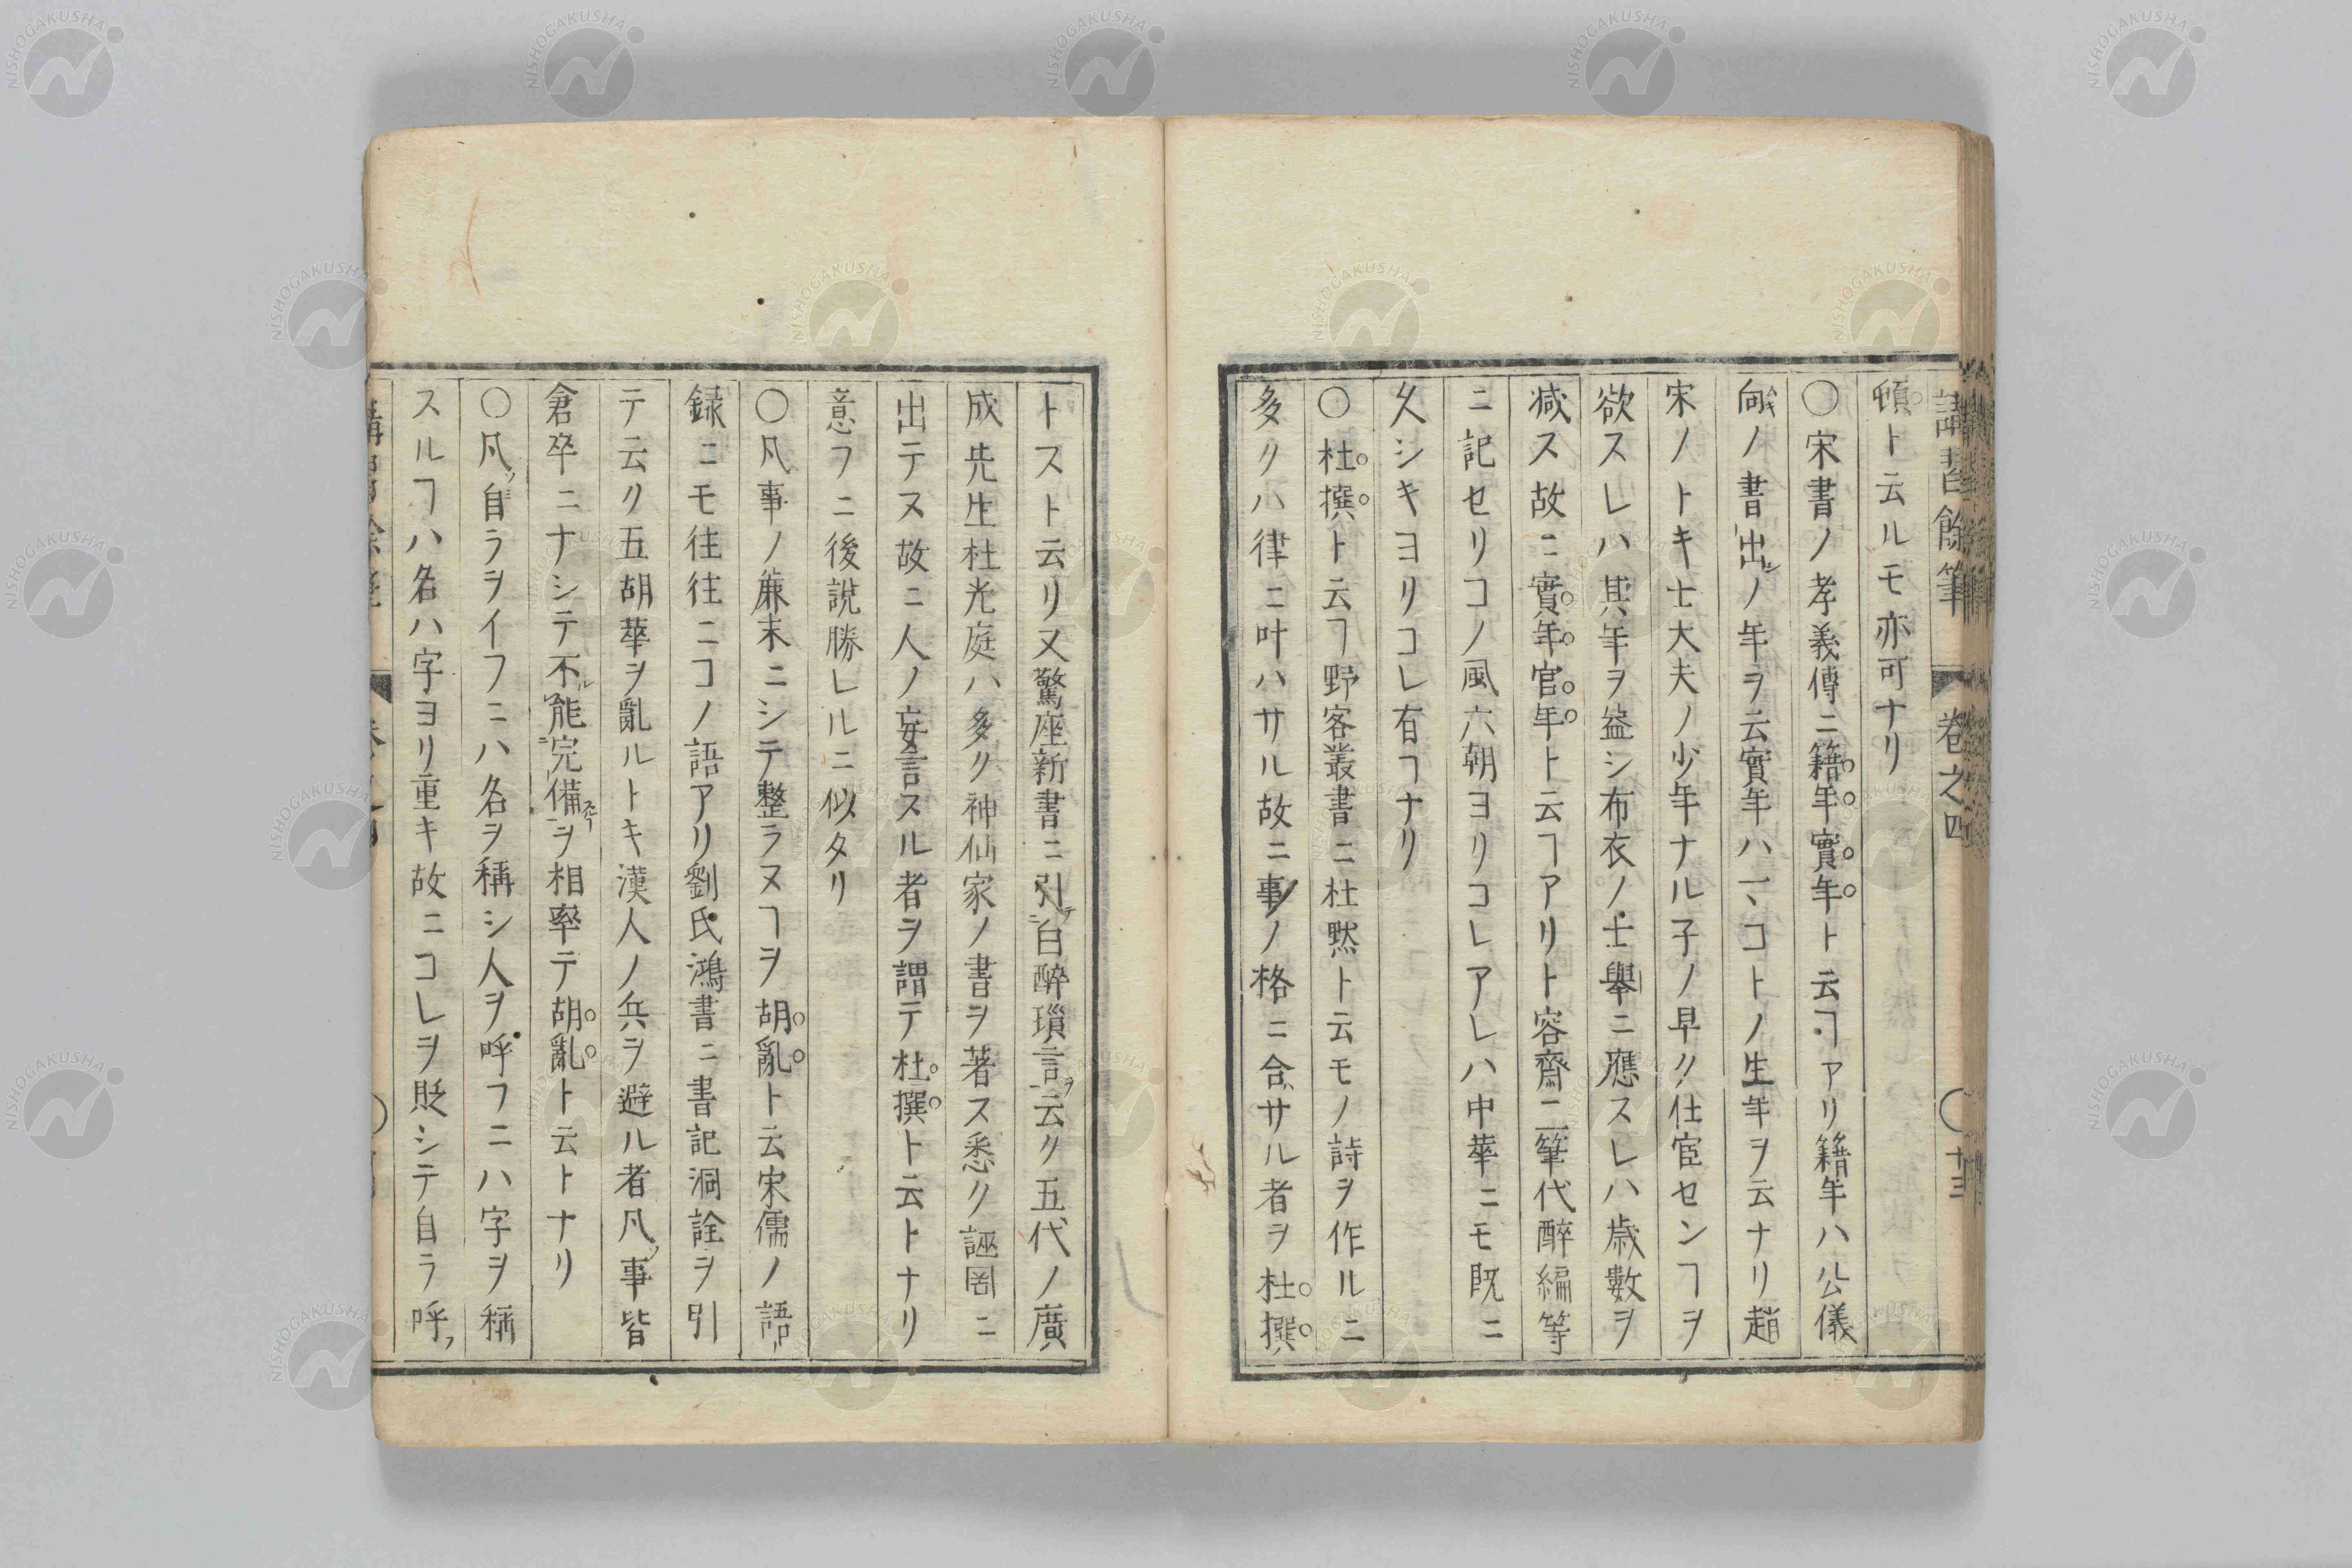 講習餘筆 卷之四 〇 十三
頓ト云ルモ亦可ナリ
〇宋書ノ孝義傳ニ籍年實年ト云ヿアリ籍年ハ公儀
向ノ書出シノ年ヲ云實年ハマコトノ生年ヲ云ナリ趙
宋ノトキ士大夫ノ少年ナル子ノ早ク仕宦センヿヲ
欲スレハ其年ヲ益シ布衣ノ士舉ニ應スレハ歳數ヲ
減ス故ニ實年官年ト云ヿアリト容齋二筆代醉編等
ニ記セリコノ風六朝ヨリコレアレハ中華ニモ既ニ
久シキヨリコレ有ヿナリ
〇杜撰ト云ヿ野客叢書ニ杜黙ト云モノ詩ヲ作ルニ
多クハ律ニ叶ハサル故ニ事ノ格ニ合サル者ヲ杜撰
トスト云リ又驚座新書ニ引テ白醉瑣言ヲ云ク五代ノ廣
成先生杜光庭ハ多ク神仙家ノ書ヲ著ス悉ク誣罔ニ
出テス故ニ人ノ妄言スル者ヲ謂テ杜撰ト云トナリ
意フニ後說勝レルニ似タリ
〇凡事ノ麁末ニシテ整ラヌヿヲ胡亂ト云宋儒ノ語
録ニモ往往ニコノ語アリ劉氏鴻書ニ書記洞詮ヲ引
テ云ク五胡華ヲ亂ルトキ漢人ノ兵ヲ避ル者凡ソ事皆
倉卒ニナシテ不ル能ニ完備スルヿヲ相率テ胡亂ト云トナリ
〇凡ソ自ラヲイフニハ名ヲ稱シ人ヲ呼フニハ字ヲ稱
スルヿハ名ハ字ヨリ重キ故ニコレヲ貶シテ自ラ呼フ
NISHOGAKUSHA